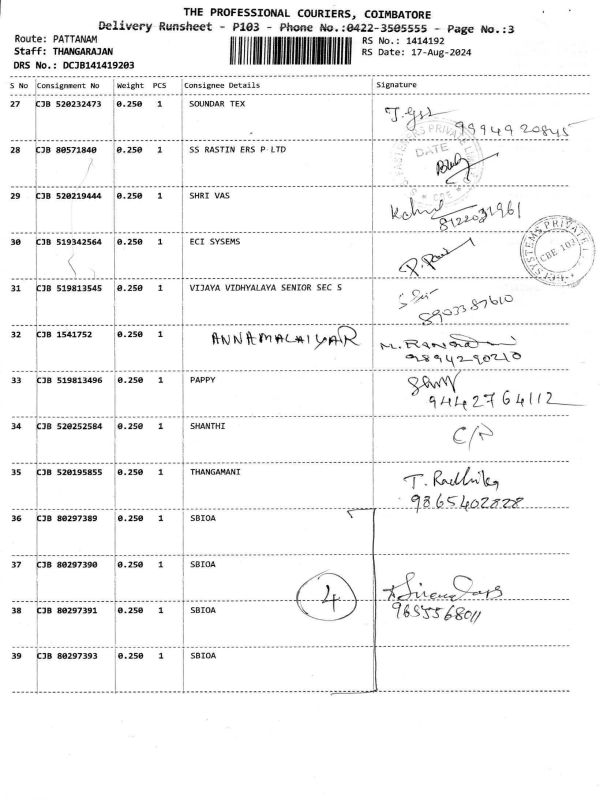 THE PROFESSIONAL COURIERS, COIMBATORE
Delivery Runsheet - P103 - Phone No.:0422-3505555 - Page No.:3
Route: PATTANAM
RS No.: 1414192
Staff: THANGARAJAN
RS Date: 17-Aug-2024
DRS No.: DCJB141419203
S No Consignment No Weight PCS Consignee Details Signature
27 CJB 520232473 0.250 1 SOUNDAR TEX
9994920845
28 CJB 80571840 0.250 1 SS RASTIN ERS P LTD
DATE
29 CJB 520219444 0.250 1 SHRI VAS
8122031961
30 CJB 519342564 0.250 1 ECI SYSEMS
CBE 103
31 CJB 519813545 0.250 1 VIJAYA VIDHYALAYA SENIOR SEC S
8903387610
32 CJB 1541752 0.250 1 ANNAMALAIYAR
9894290210
33 CJB 519813496 0.250 1 PAPPY
9442764112
34 CJB 520252584 0.250 1 SHANTHI
35 CJB 520195855 0.250 1 THANGAMANI T. Radhika
9865402828
36 CJB 80297389 0.250 1 SBIOA
37 CJB 80297390 0.250 1 SBIOA
4
38 CJB 80297391 0.250 1 SBIOA
9655568011
39 CJB 80297393 0.250 1 SBIOA